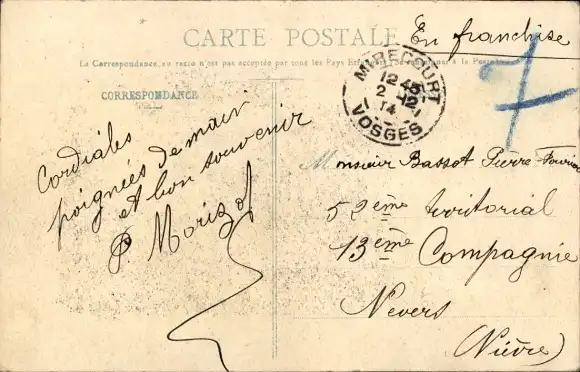 En franchise
CARTE POSTALE
La Correspondance au recto n'est pas acceptée par tous les Pays Etrangers. (Se renseigner à la Poste)
CORRESPONDANCE
MIRECOURT
12 45
2 -12
14
VOSGES
Cordiales
poignées de main
et bon souvenir
P. Morizot
Monsieur Bassot Pierre-Fourier
52ème territorial
13ème Compagnie
Nevers
(Nièvre)